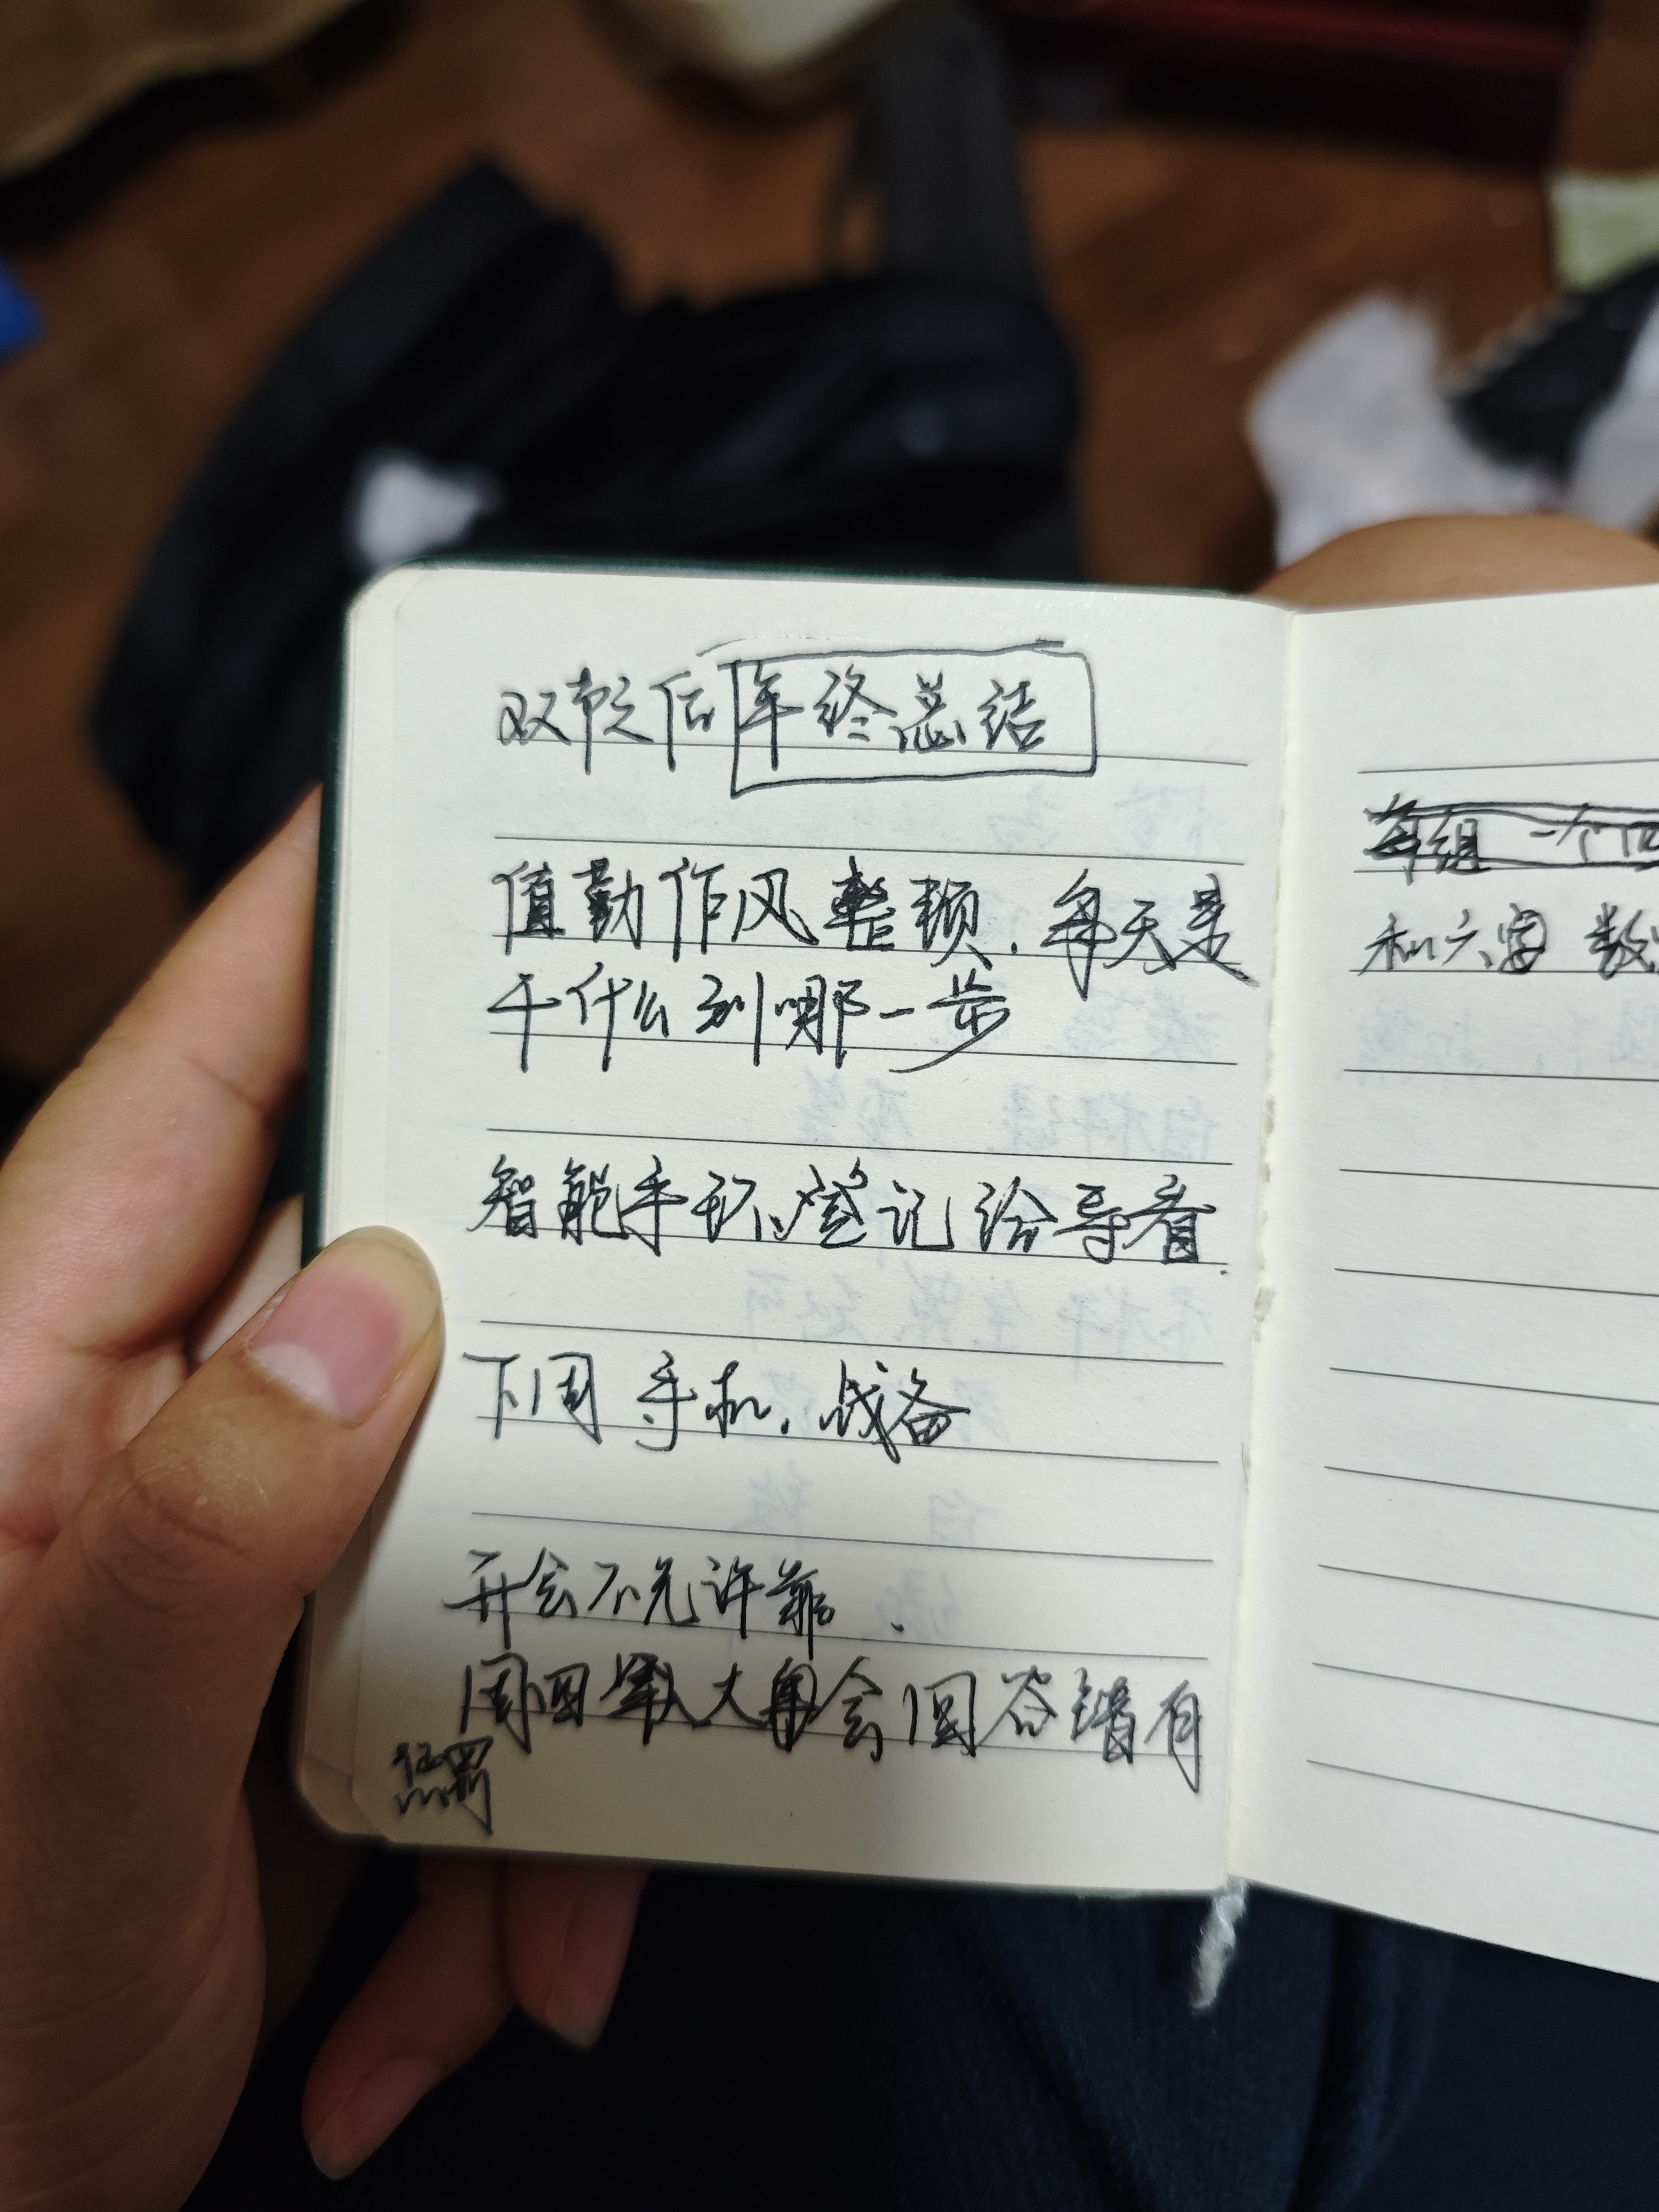 双节之后年终总结
值勤作风整顿.每天是
干什么到哪一步
智能手环登记给导看.
下周 手机.战备
开会不允许靠.
周四军人大会回答错有
惩罚
每组 一个
和六室 数